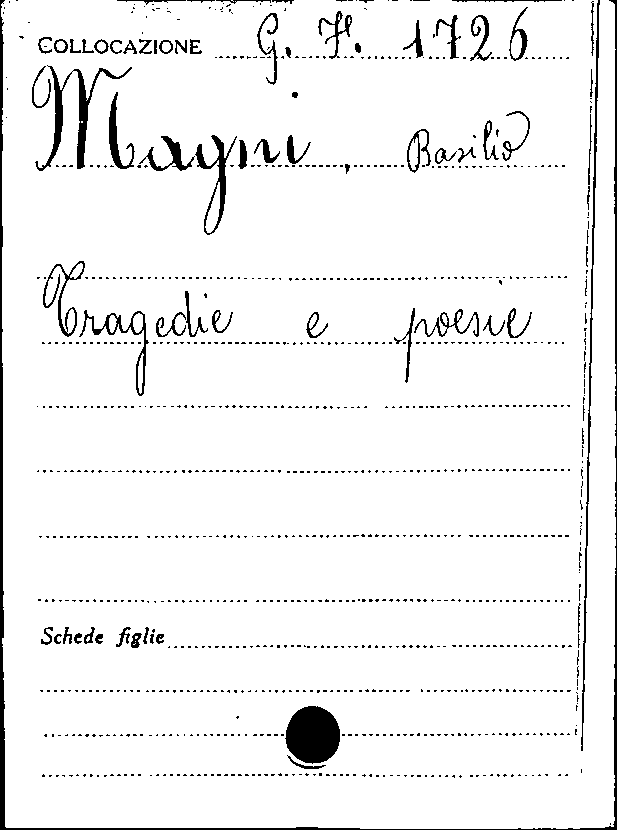 COLLOCAZIONE G. F. 1726
Magni, Basilio
Tragedie e poesie
Schede figlie